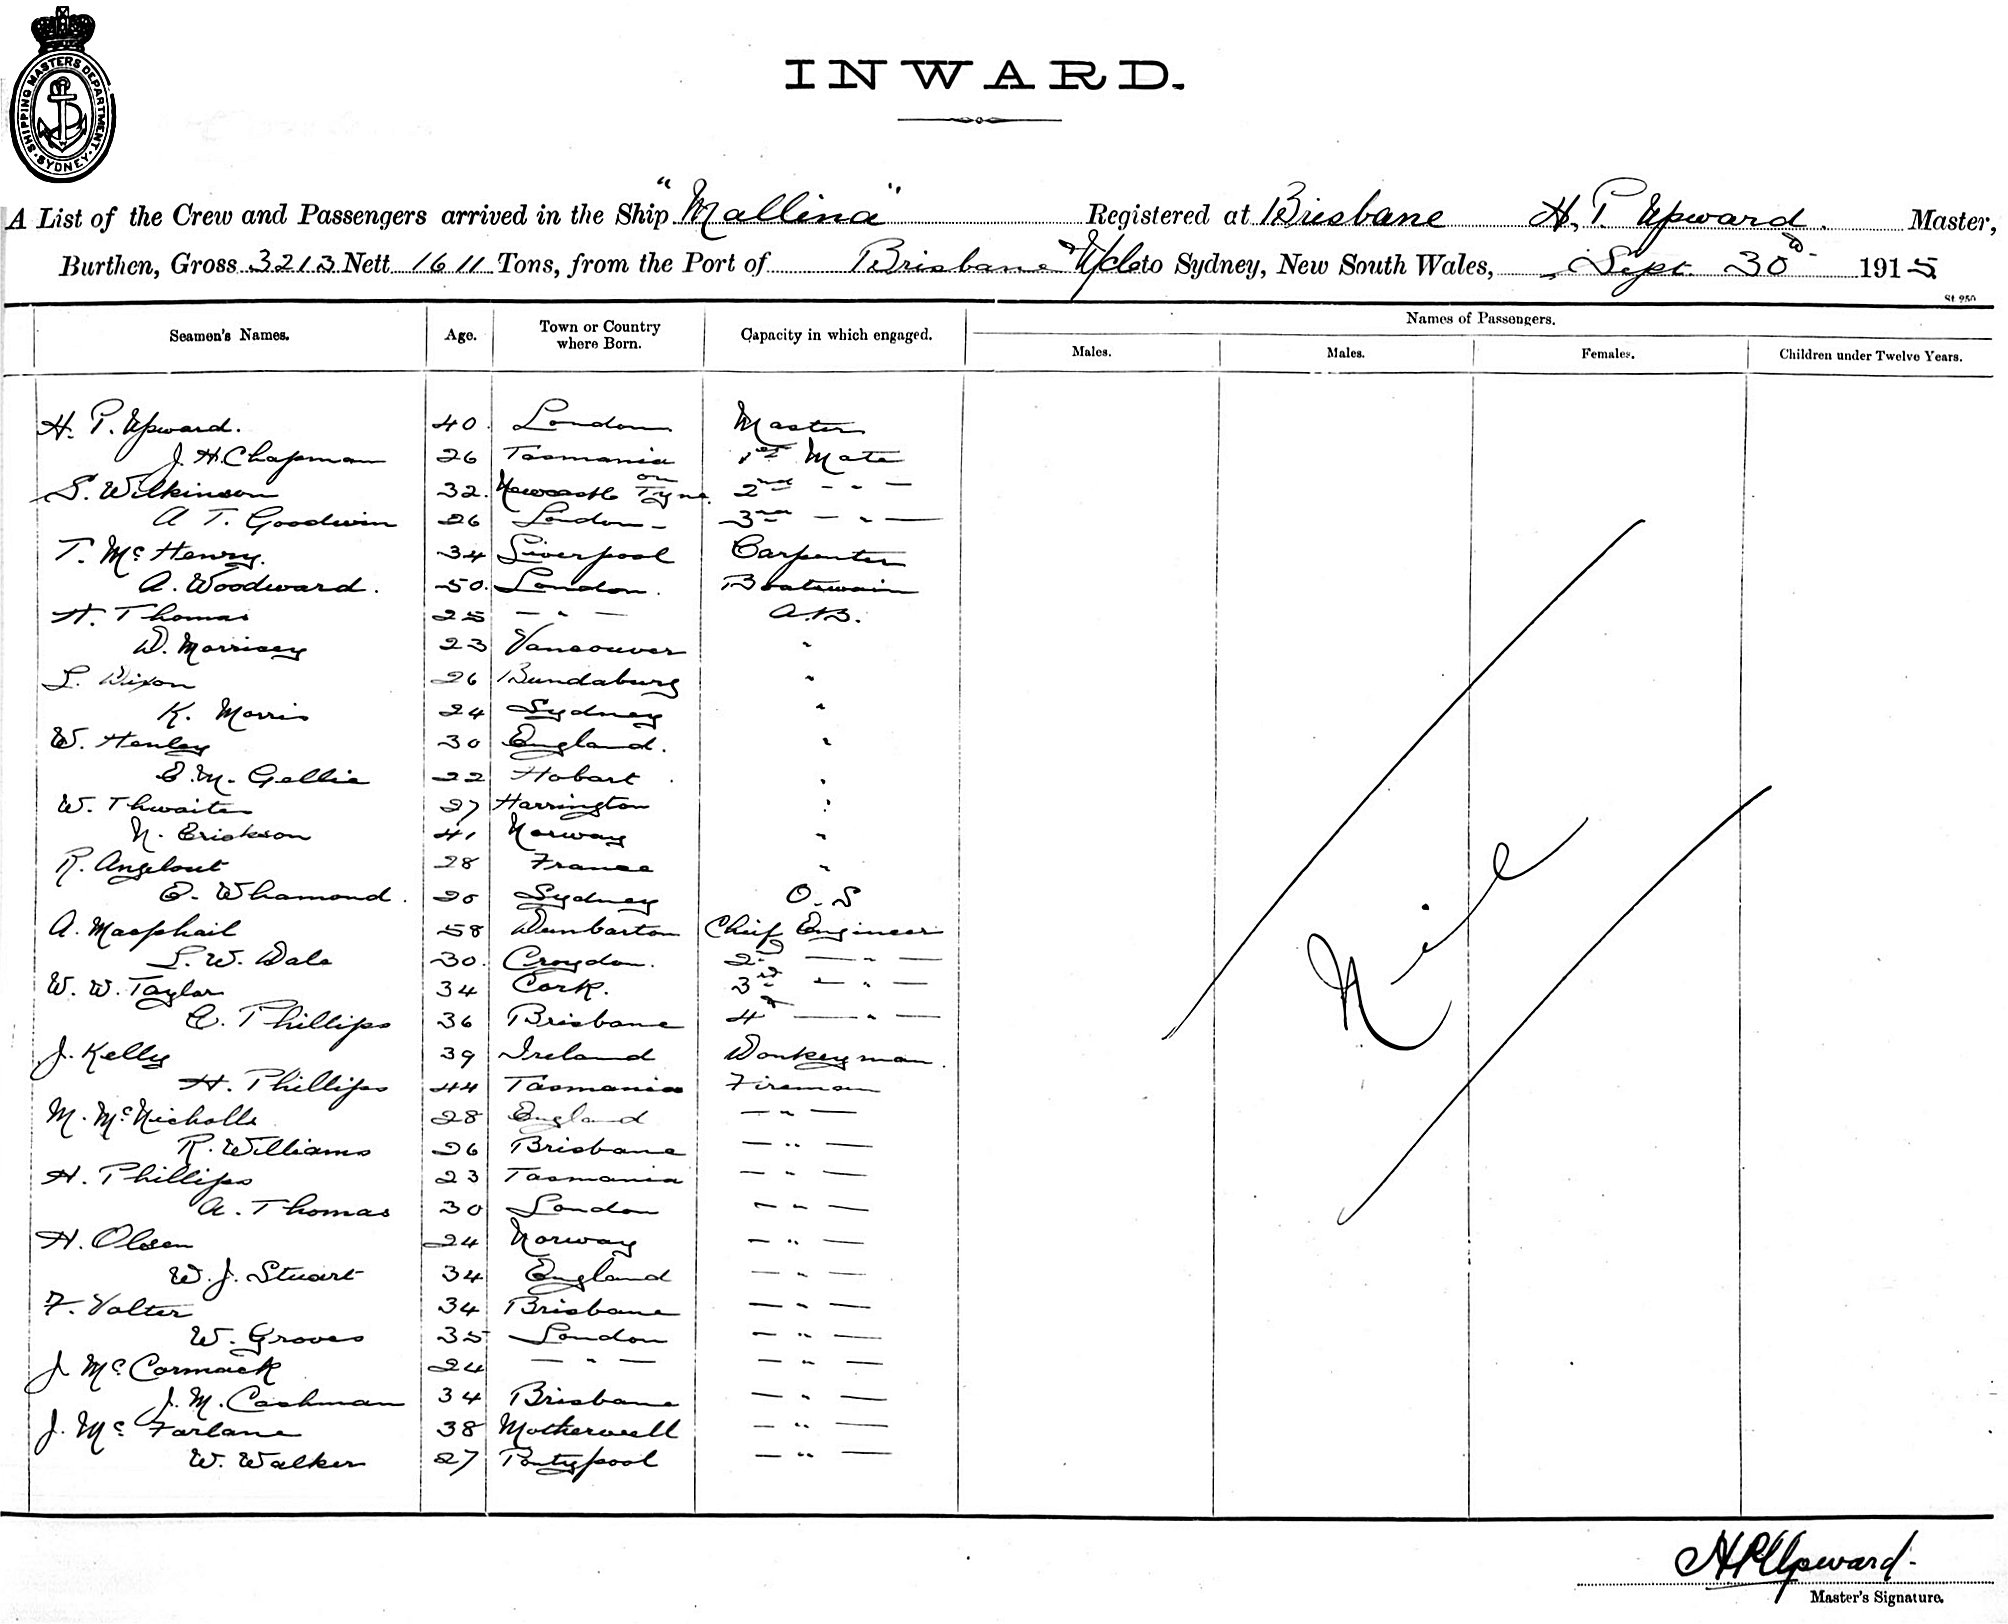 SHIPPING MASTERS DEPARTMENT. SYDNEY.
INWARD.
A List of the Crew and Passengers arrived in the Ship "Mallina" Registered at Brisbane H. P. Upward. Master,
Burthen, Gross 3213 Nett 1611 Tons, from the Port of Brisbane to Sydney, New South Wales, Sept. 30th 1915
St 250
Seamen's Names. Age. Town or Country where Born. Capacity in which engaged. Names of Passengers.
Males. Males. Females. Children under Twelve Years.
H. P. Upward. 40. London Master
J. H. Chapman 26 Tasmania 1st Mate
S. Wilkinson 32. Newcastle on Tyne. 2nd - " -
A T. Goodwin 26 London - 3rd - " -
T. McHenry. 34 Liverpool Carpenter
A. Woodward. 50. London. Boatswain
H. Thomas 25 - " - A.B.
D. Morrisey 23 Vancouver "
L. Dixon 26 Bundaburg "
K. Morris 24 Sydney "
W. Henley 30 England. "
E. M. Gellie 22 Hobart. "
W. Thwaites 27 Harrington "
N. Erickson 41 Norway "
R. Angelout 28 France "
E. Whamond. 20 Sydney O. S
A. Macphail 58 Dumbarton Chief Engineer
L. W. Dale 30. Croydon. 2nd - " -
W. W. Taylor 34 Cork. 3rd - " -
C. Phillips 36 Brisbane 4th - " -
J. Kelly 39 Ireland Donkeyman.
H. Phillips 44 Tasmania Fireman
M. McNicholls 28 England - " -
R. Williams 26 Brisbane - " -
H. Phillips 23 Tasmania - " -
A. Thomas 30 London - " -
H. Olsen 24 Norway - " -
W. J. Stuart 34 England - " -
F. Valter 34 Brisbane - " -
W. Groves 35 London - " -
J. McCormack 24 - " - - " -
J. M. Cashman 34 Brisbane - " -
J. McFarlane 38 Motherwell - " -
W. Walker 27 Pontypool - " -
Nil
H P Upward.
Master's Signature.